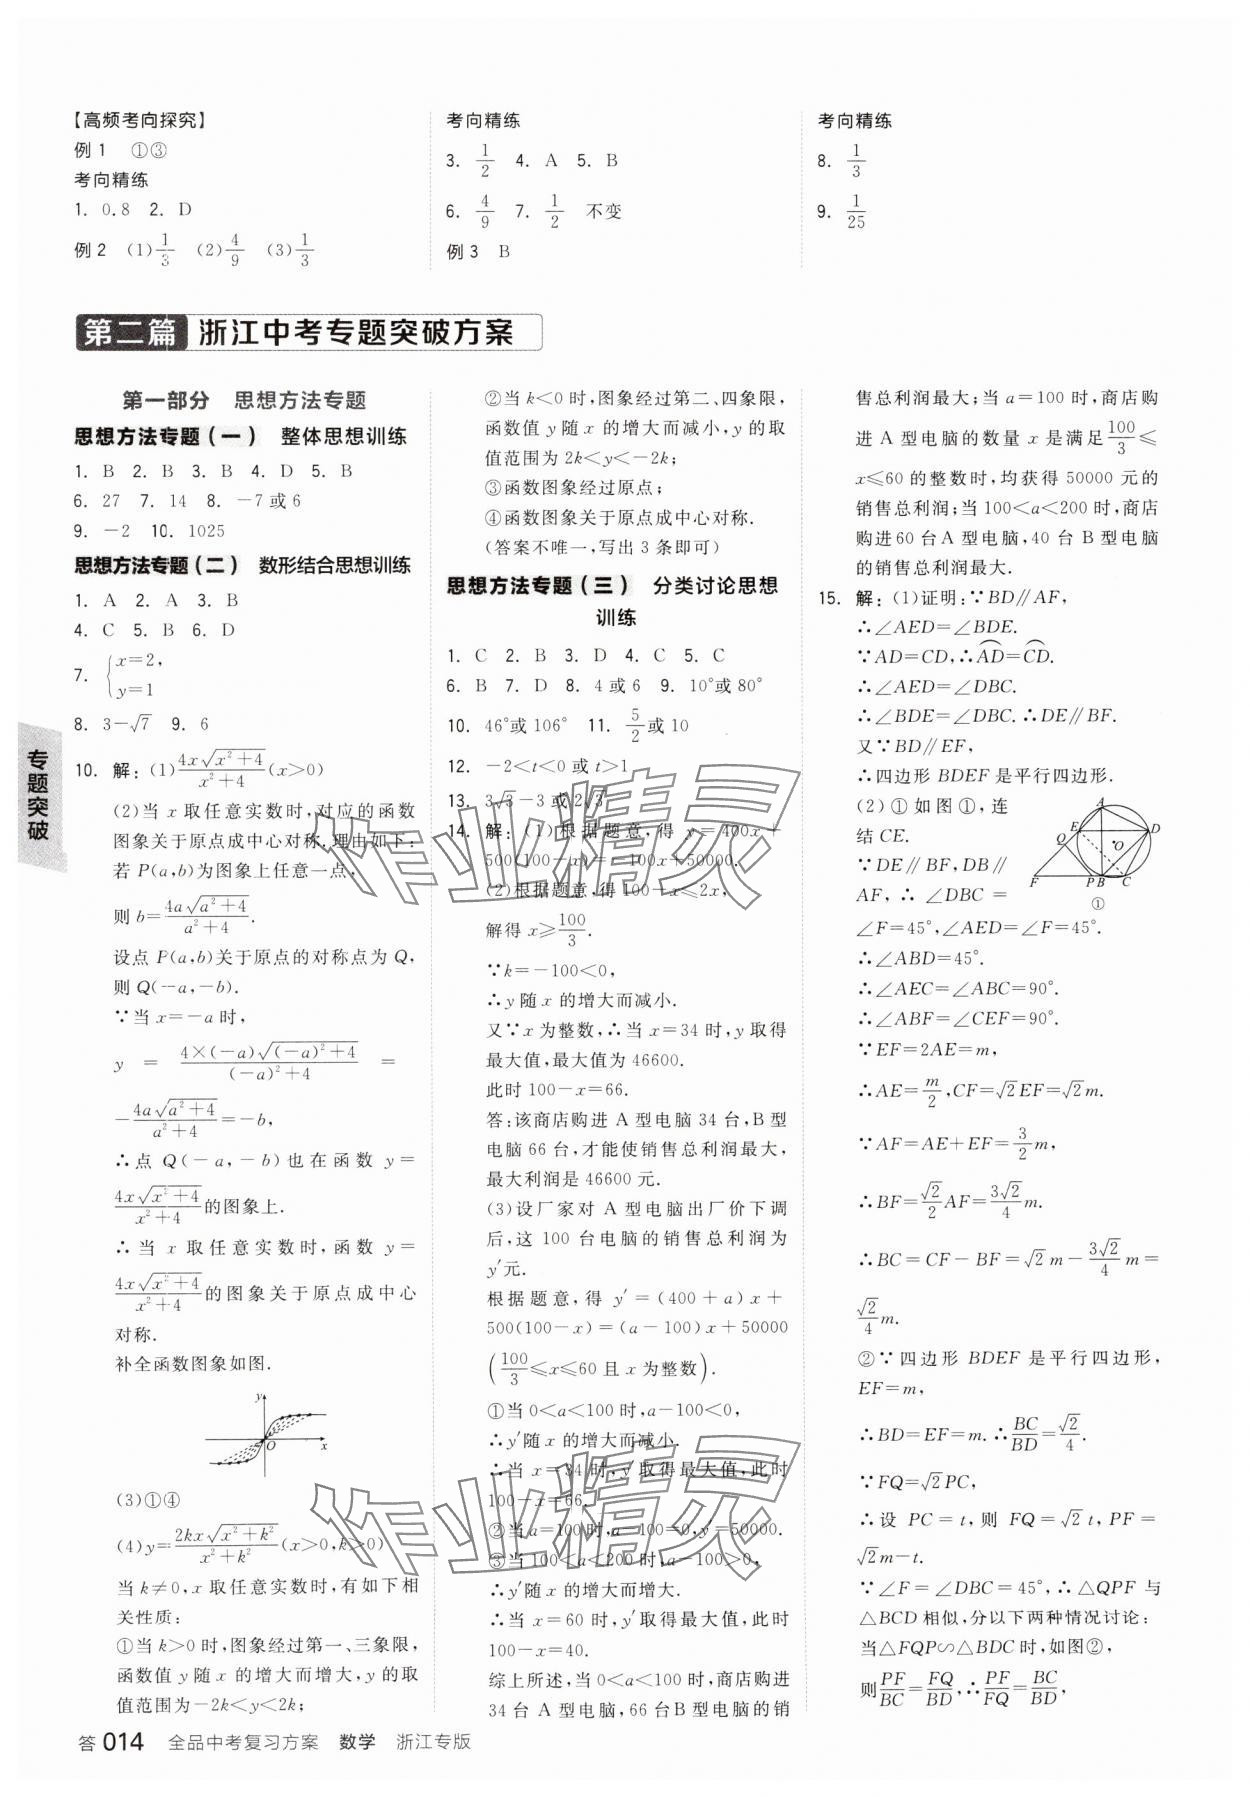 【高频考向探究】
例1 ①③
考向精练
1. 0.8 2. D
例2 (1)1/3 (2)4/9 (3)1/3
考向精练
3. 1/2 4. A 5. B
6. 4/9 7. 1/2 不变
例3 B
考向精练
8. 1/3
9. 1/25
第二篇 浙江中考专题突破方案
第一部分 思想方法专题
思想方法专题(一) 整体思想训练
1. B 2. B 3. B 4. D 5. B
6. 27 7. 14 8. -7或6
9. -2 10. 1025
思想方法专题(二) 数形结合思想训练
1. A 2. A 3. B
4. C 5. B 6. D
7. {x=2,
y=1
8. 3-√7 9. 6
10. 解:(1)4x√(x²+4)/(x²+4)(x>0)
(2)当 x 取任意实数时,对应的函数
图象关于原点成中心对称.理由如下:
若 P(a,b)为图象上任意一点,
则 b=4a√(a²+4)/(a²+4).
设点 P(a,b)关于原点的对称点为 Q,
则 Q(-a,-b).
∵当 x=-a 时,
y = 4×(-a)√((-a)²+4)/((-a)²+4) =
-4a√(a²+4)/(a²+4)=-b,
∴点 Q(-a,-b)也在函数 y=
4x√(x²+4)/(x²+4)的图象上.
∴当 x 取任意实数时,函数 y=
4x√(x²+4)/(x²+4)的图象关于原点成中心
对称.
补全函数图象如图.
y
O
x
(3)①④
(4)y=2kx√(x²+k²)/(x²+k²)(x>0,k>0)
当 k≠0,x 取任意实数时,有如下相
关性质:
①当 k>0 时,图象经过第一、三象限,
函数值 y 随 x 的增大而增大,y 的取
值范围为-2k<y<2k;
②当 k<0 时,图象经过第二、四象限,
函数值 y 随 x 的增大而减小,y 的取
值范围为 2k<y<-2k;
③函数图象经过原点;
④函数图象关于原点成中心对称.
(答案不唯一,写出 3 条即可)
思想方法专题(三) 分类讨论思想
训练
1. C 2. B 3. D 4. C 5. C
6. B 7. D 8. 4 或 6 9. 10°或80°
10. 46°或 106° 11. 5/2或 10
12. -2<t<0 或 t>1
13. 3√3-3 或 2√3
14. 解:(1)根据题意,得 y=400x+
500(100-x)=-100x+50000.
(2)根据题意,得 100-x≤2x,
解得 x≥100/3.
∵k=-100<0,
∴y 随 x 的增大而减小.
又∵x 为整数,∴当 x=34 时,y 取得
最大值,最大值为 46600.
此时 100-x=66.
答:该商店购进 A 型电脑 34 台,B 型
电脑 66 台,才能使销售总利润最大,
最大利润是 46600 元.
(3)设厂家对 A 型电脑出厂价下调
后,这 100 台电脑的销售总利润为
y′元.
根据题意,得 y′=(400+a)x+
500(100-x)=(a-100)x+50000
(100/3≤x≤60 且 x 为整数).
①当 0<a<100 时,a-100<0,
∴y′随 x 的增大而减小.
∴当 x=34 时,y′取得最大值,此时
100-x=66.
②当 a=100 时,a-100=0,y′=50000.
③当 100<a<200 时,a-100>0,
∴y′随 x 的增大而增大.
∴当 x=60 时,y′取得最大值,此时
100-x=40.
综上所述,当 0<a<100 时,商店购进
34 台 A 型电脑,66 台 B 型电脑的销
售总利润最大;当 a=100 时,商店购
进 A 型电脑的数量 x 是满足100/3≤
x≤60 的整数时,均获得 50000 元的
销售总利润;当 100<a<200 时,商店
购进60 台A 型电脑,40 台 B 型电脑
的销售总利润最大.
15. 解:(1)证明:∵BD∥AF,
∴∠AED=∠BDE.
∵AD=CD,∴AD⌒=CD⌒.
∴∠AED=∠DBC.
∴∠BDE=∠DBC.∴DE∥BF.
又∵BD∥EF,
∴四边形 BDEF 是平行四边形.
(2)①如图①,连
结 CE.
∵DE∥BF,DB∥
AF,∴∠DBC=
∠F=45°,∠AED=∠F=45°.
A
E
D
Q
O
F
P
B
C
①
∴∠ABD=45°.
∴∠AEC=∠ABC=90°.
∴∠ABF=∠CEF=90°.
∵EF=2AE=m,
∴AE=m/2,CF=√2EF=√2m.
∵AF=AE+EF=3/2m,
∴BF=√2/2AF=3√2/4m.
∴BC=CF-BF=√2m-3√2/4m=
√2/4m.
②∵四边形 BDEF 是平行四边形,
EF=m,
∴BD=EF=m.∴BC/BD=√2/4.
∵FQ=√2PC,
∴设 PC=t,则 FQ=√2t,PF=
√2m-t.
∵∠F=∠DBC=45°,∴△QPF 与
△BCD 相似,分以下两种情况讨论:
当△FQP∽△BDC时,如图②,
则PF/BC=FQ/BD,∴PF/FQ=BC/BD,
专题突破
答 014 全品中考复习方案 数学 浙江专版
作业精灵
作业精灵